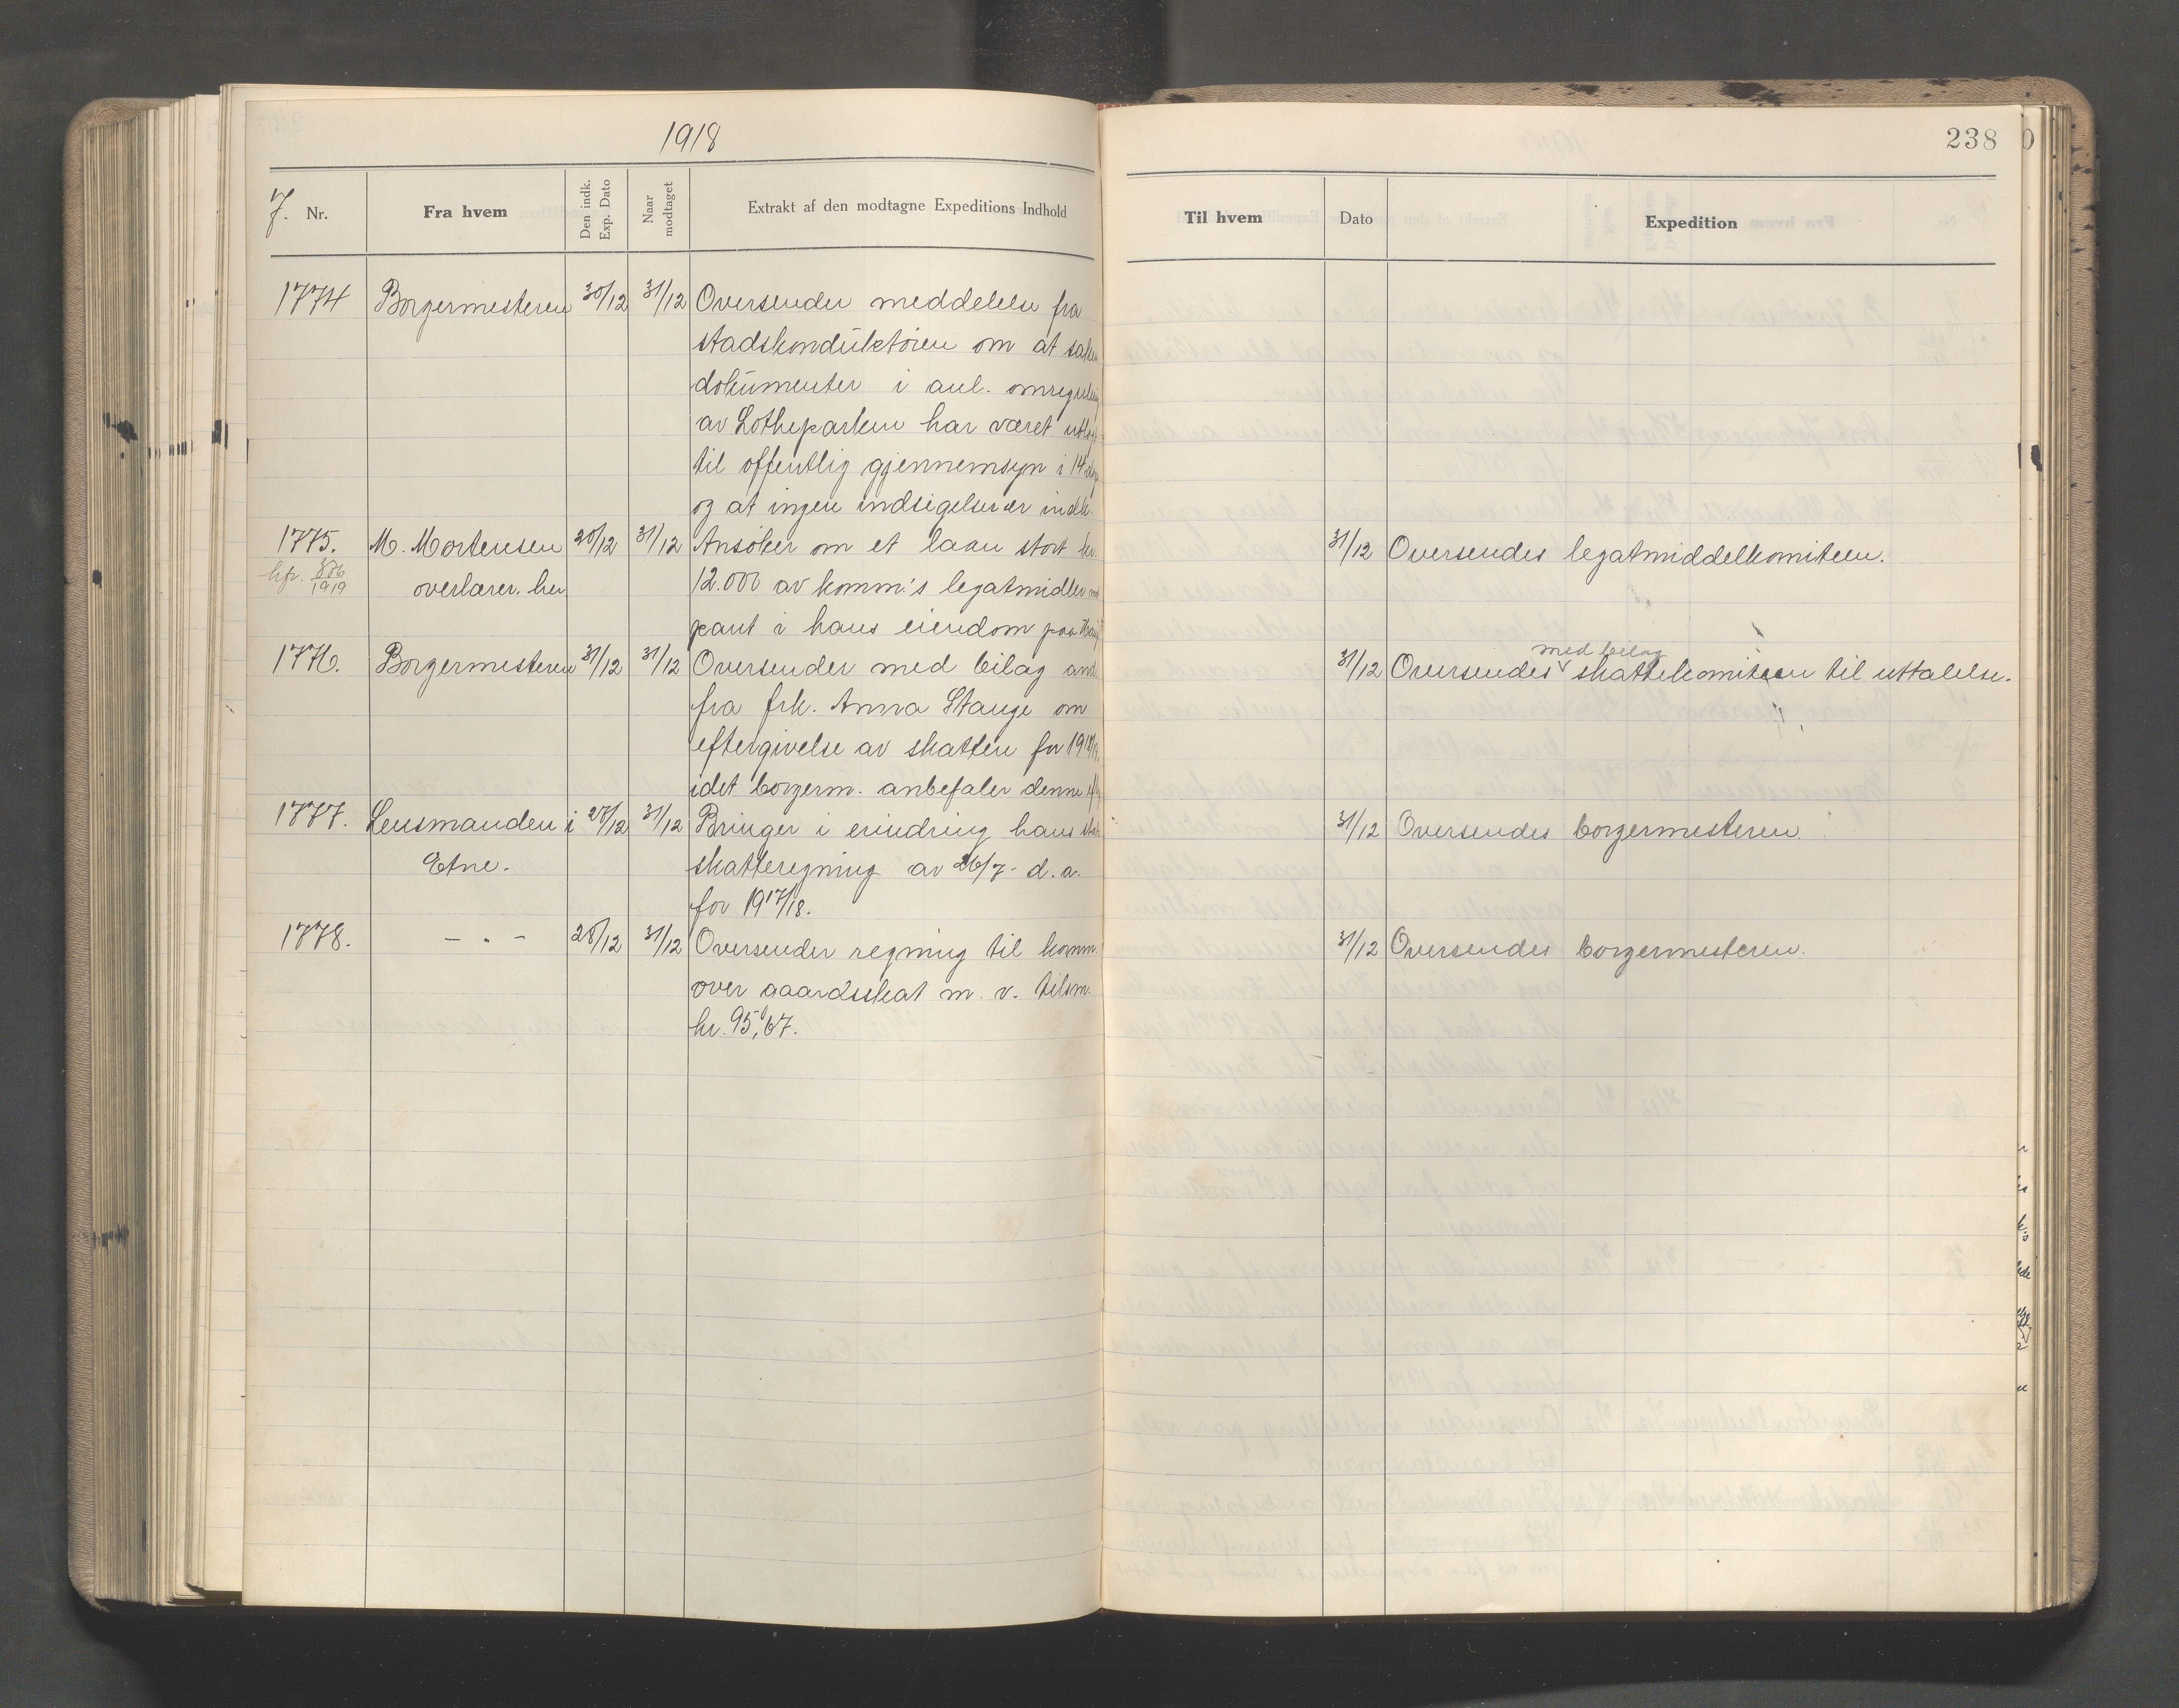 1918
J. Nr.
Fra hvem
Den indk. Exp. Dato
Naar modtaget
Extrakt af den modtagne Expeditions Indhold
1774 Borgermesteren 30/12 31/12 Oversender meddelelse fra
stadskonduktøren om at
dokumenter i anl. omreguler
av Lotheparken har været utlagt
til offentlig gjennemsyn i 14
og at ingen indsigelser er indk.
1775. M. Mortensen 20/12 31/12 Ansøker om et laan stort kr.
kfr. 886/1919 overlærer, her 12.000 av komm's legatmidler
pant i hans eiendom paa
1776. Borgermesteren 31/12 31/12 Oversender med bilag and.
fra frk. Anna Stange om
eftergivelse av skatten for
idet borgerm. anbefaler denne
1777. Lensmanden i 28/12 31/12 Bringer i erindring hans
Etne. skatteregning av 26/7 - d. a.
for 1917/18.
1778. - " - 28/12 31/12 Oversender regning til komm.
over gaardsskat m. v. tilsm.
kr. 95,67.
238
Til hvem
Dato
Expedition
31/12 Oversendes legatmiddelkomiteen.
med bilag
31/12 Oversendes skattekomiteen til uttalelse.
31/12 Oversendes borgermesteren.
31/12 Oversendes borgermesteren.